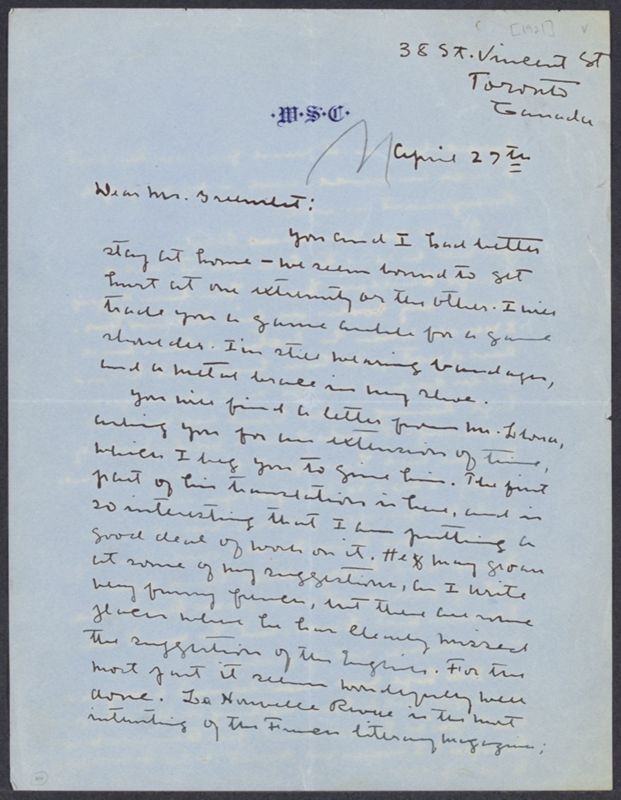 [1921]
38 St. Vincent St
Toronto
Canada
·W·S·C·
April 27th
Dear Mr. Greenslet:
You and I had better
stay at home - we seem bound to get
hurt at one extremity or the other. I will
trade you a game ankle for a game
shoulder. I'm still wearing bandages,
and a metal brace in my shoe.
You will find a letter from Mr.
asking you for an extension of time,
which I beg you to give him. The first
part of his translation is here, and is
so interesting that I am putting a
good deal of work on it. He may groan
at some of my suggestions, as I write
very funny French, but there are some
places where he has clearly missed
the suggestion of the English. For the
most part it seems wonderfully well
done. La Nouvelle Revue is the most
interesting of the French literary magazines;